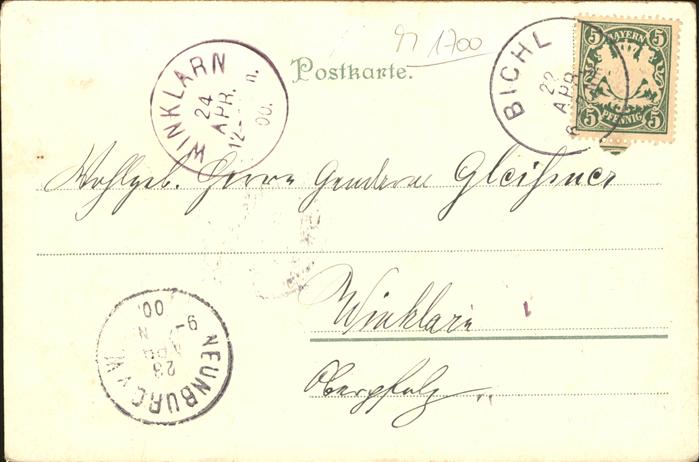 n 1700
Postkarte.
WINKLARN
24
APR.
12-
n.
00.
BICHL
22
APR
5 BAYERN 5
5 PFENNIG 5
Wohlgeb. Herrn Gendarm Gleißner
Winklarn
Oberpfalz.
NEUNBURG V/W
23
APR
N
9-
00.